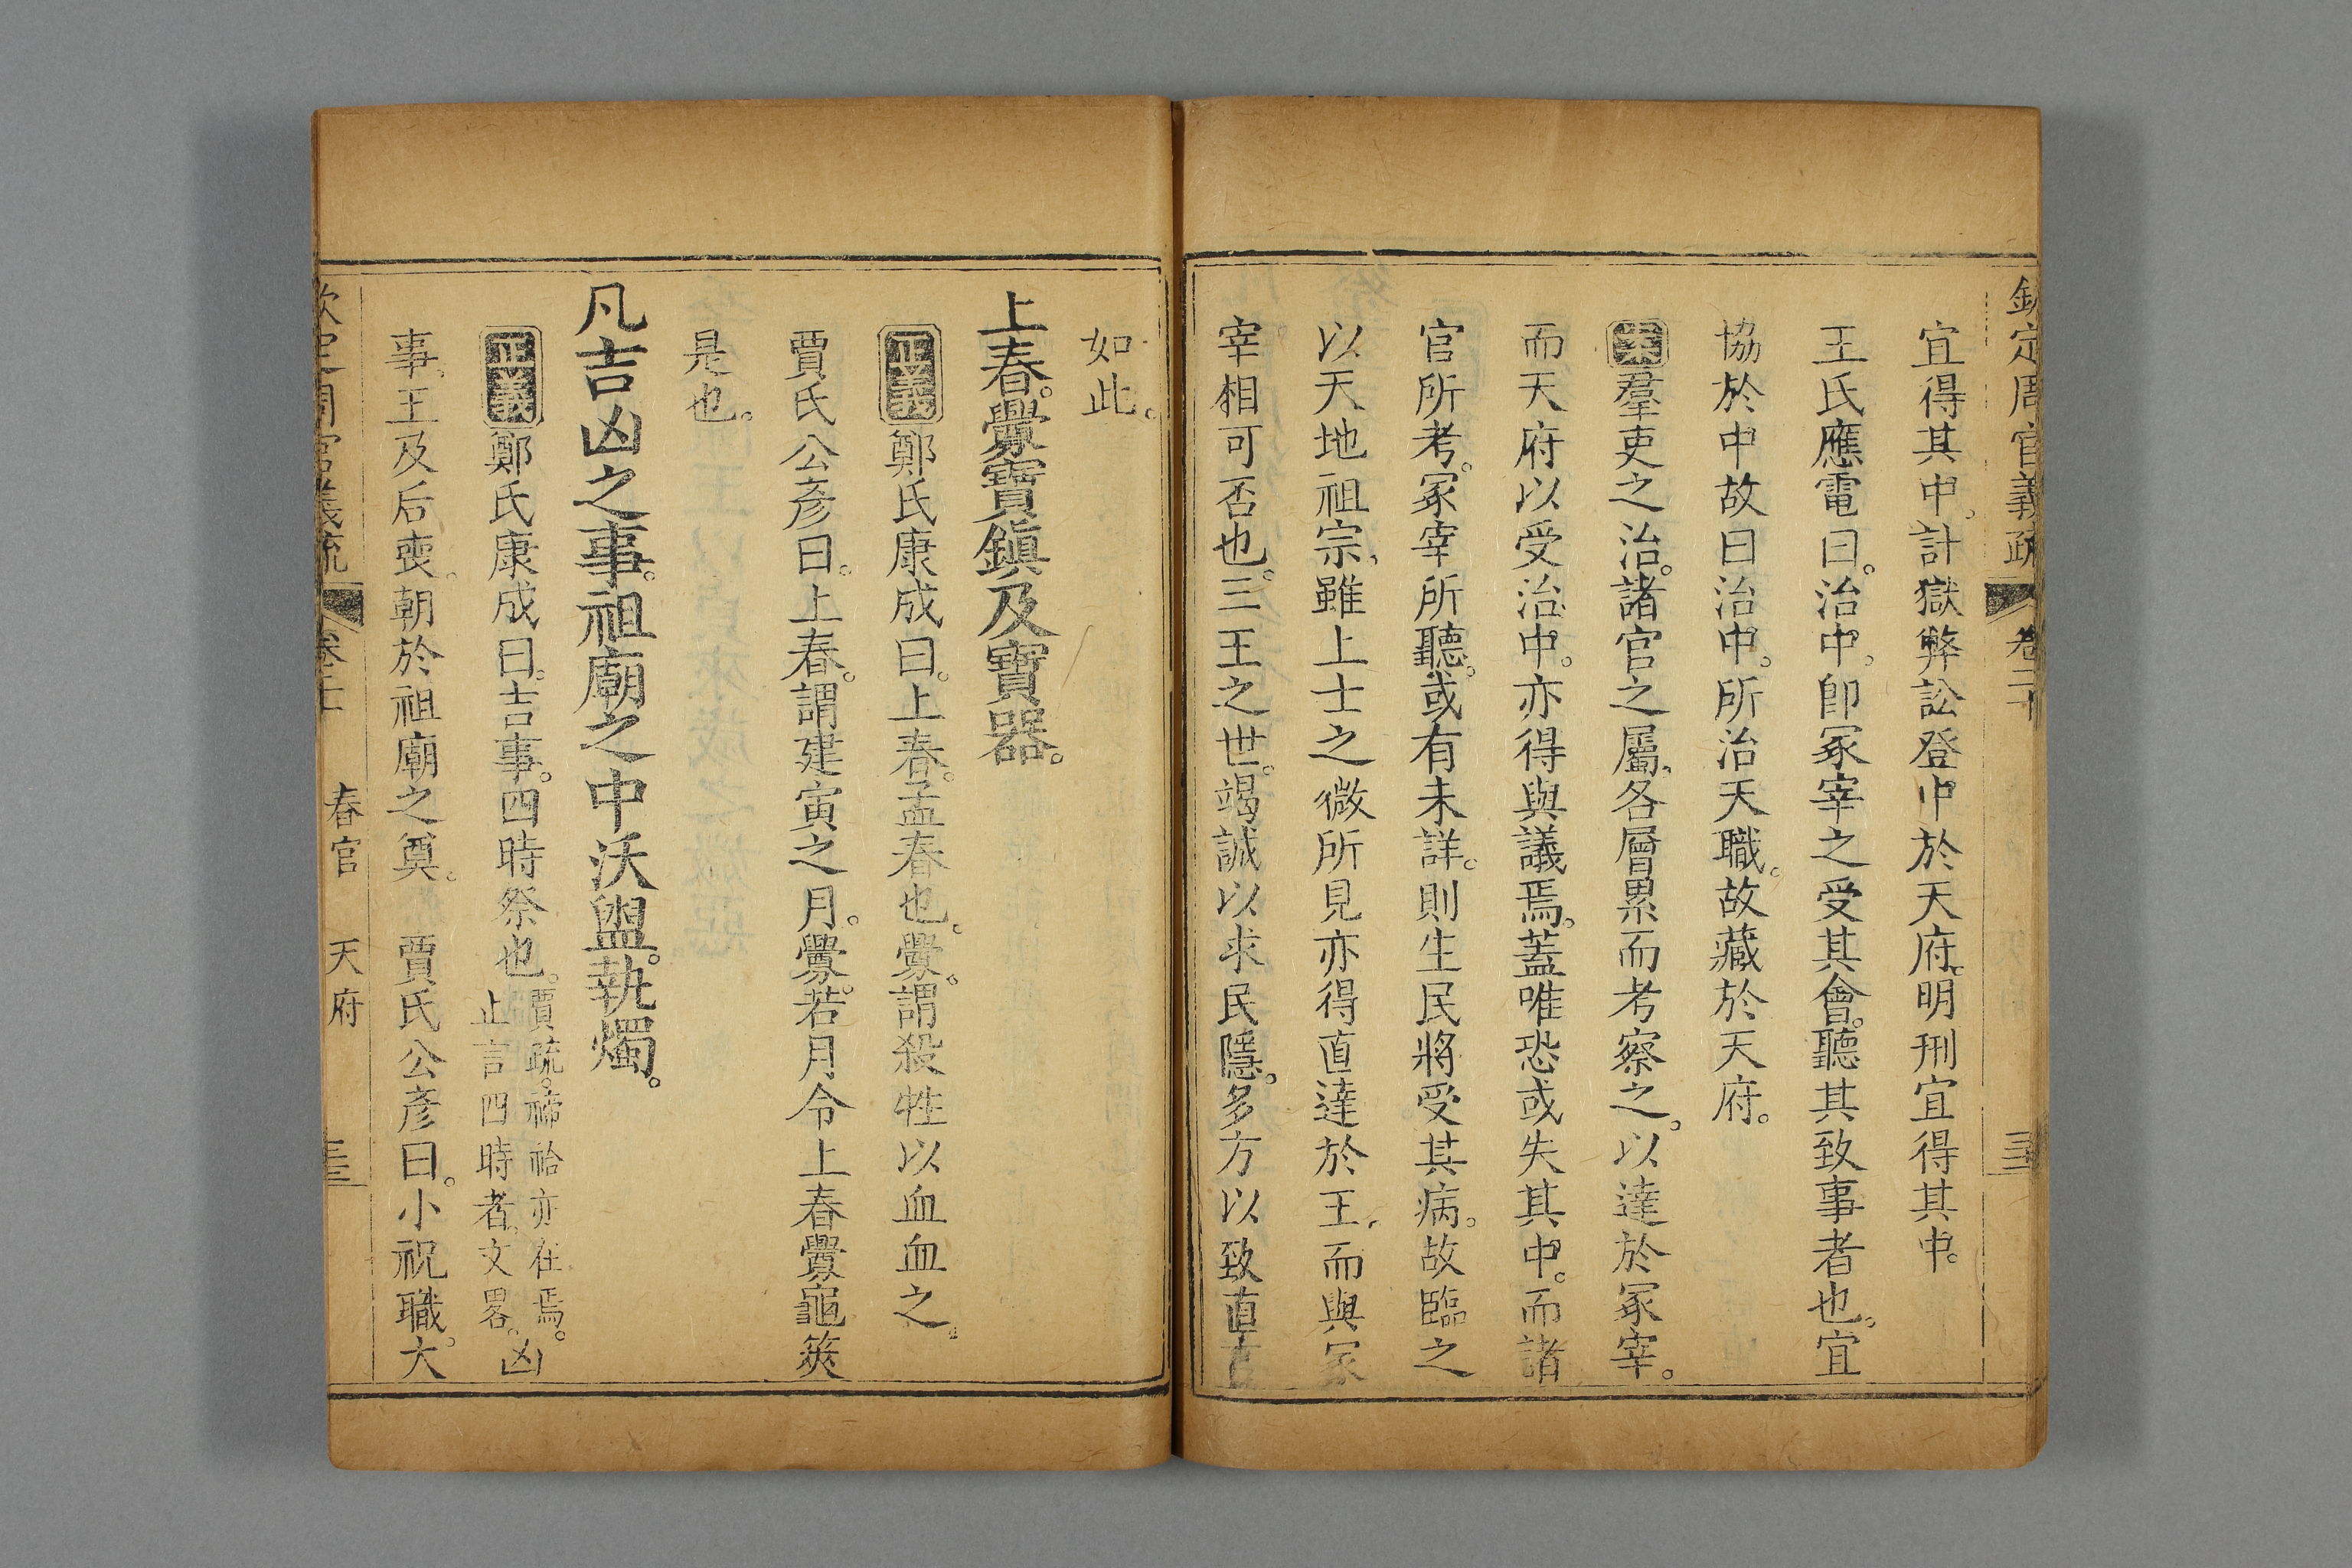 欽定周官義疏 卷二十
宜得其中。計獄弊訟登中於天府。明刑宜得其中。
王氏應電曰。治中。卽冢宰之受其會。聽其致事者也。宜
協於中故曰治中。所治天職。故藏於天府。
案羣吏之治。諸官之屬。各層累而考察之。以達於冢宰。
而天府以受治中。亦得與議焉。蓋唯恐或失其中。而諸
官所考。冢宰所聽。或有未詳。則生民將受其病。故臨之
以天地祖宗。雖上士之微所見亦得直達於王。而與冢
宰相可否也。三王之世。竭誠以求民隱。多方以致直言
如此。
上春。釁寶鎭及寶器。
正義鄭氏康成曰。上春。孟春也。釁。謂殺牲以血血之。
賈氏公彥曰。上春。謂建寅之月。釁。若月令上春釁龜筴
是也。
凡吉凶之事。祖廟之中沃盥。執燭。
正義鄭氏康成曰。吉事。四時祭也。賈疏。禘祫亦在焉。止言四時者。文畧。凶
事。王及后喪。朝於祖廟之奠。 賈氏公彥曰。小祝職。大
欽定周官義疏 春官 天府